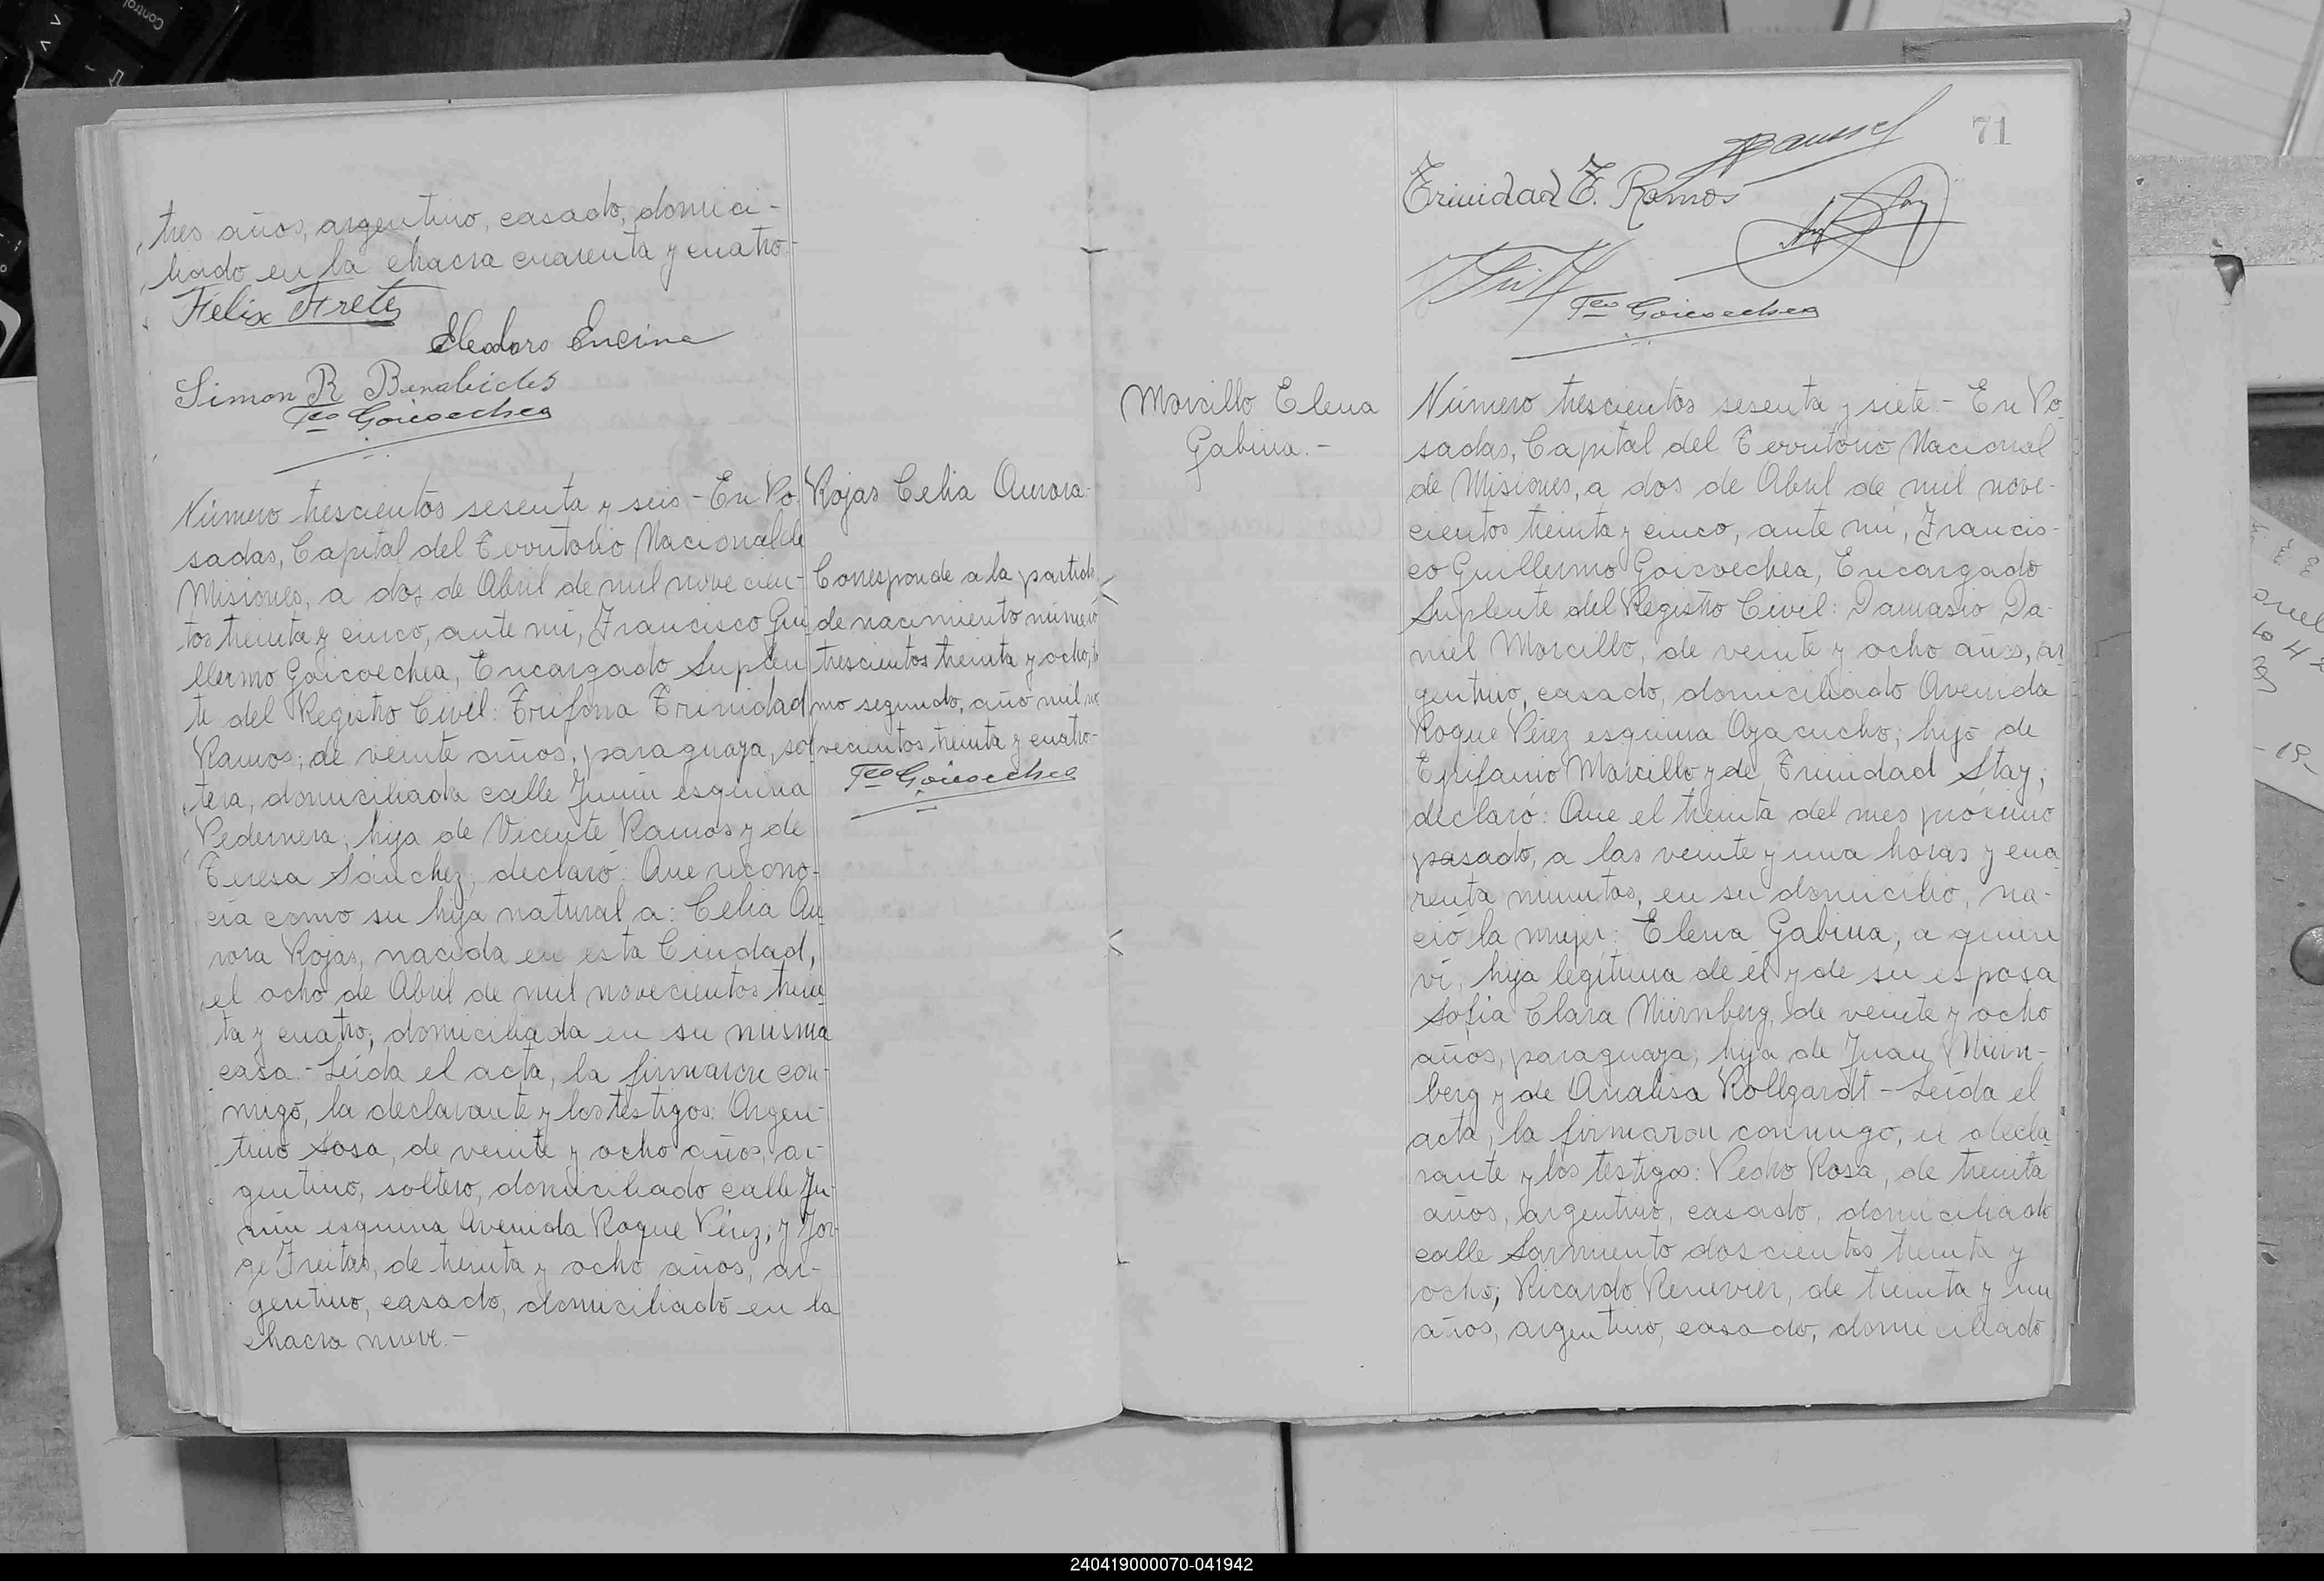 tres años, argentino, casado, domici-
liado en la chacra cuarenta y cuatro.-
Felix Frete
Eleodoro Encina
Simon R Benabides
Fco Goicoechea
Número trescientos sesenta y seis - En Po-
sadas, Capital del Territorio Nacional de
Misiones, a dos de Abril de mil novecien-
tos treinta y cinco, ante mí, Francisco Gui-
llermo Goicoechea, Encargado Suplen-
te del Registro Civil: Trifona Trinidad
Ramos, de veinte años, paraguaya, sol-
tera, domiciliada calle Junín esquina
Pedernera, hija de Vicente Ramos y de
Teresa Sánchez, declaró: Que recono-
cía como su hija natural a: Celia Au-
rora Rojas, nacida en esta Ciudad,
el ocho de Abril de mil novecientos trein-
ta y cuatro; domiciliada en su misma
casa.- Leída el acta, la firmaron con-
migo, la declarante y los testigos: Argen-
tino Sosa, de veinte y ocho años, ar-
gentino, soltero, domiciliado calle Ju-
nín esquina Avenida Roque Pérez; y Jor-
ge Freitas, de treinta y ocho años, ar-
gentino, casado, domiciliado en la
chacra nueve.-
Rojas Celia Aurora.-
Corresponde a la partida
de nacimiento número
trescientos treinta y ocho, to-
mo segundo, año mil no-
vecientos treinta y cuatro.-
Fco Goicoechea
71
Trinidad T. Ramos
Fco Goicoechea
Morcillo Elena
Gabina.-
Número trescientos sesenta y siete - En Po-
sadas, Capital del Territorio Nacional
de Misiones, a dos de Abril de mil nove-
cientos treinta y cinco, ante mí, Francis-
co Guillermo Goicoechea, Encargado
Suplente del Registro Civil: Damasio Da-
niel Morcillo, de veinte y ocho años, ar-
gentino, casado, domiciliado Avenida
Roque Pérez esquina Ayacucho; hijo de
Epifanio Morcillo y de Trinidad Stay;
declaró: Que el treinta del mes próximo
pasado, a las veinte y una horas y cua-
renta minutos, en su domicilio, na-
ció la mujer: Elena Gabina, a quien
ví, hija legítima de él y de su esposa
Sofía Clara Nürnberg, de veinte y ocho
años, paraguaya; hija de Juan Nürn-
berg y de Analisa Rollgardt - Leída el
acta, la firmaron conmigo, el decla-
rante y los testigos: Pedro Rosa, de treinta
años, argentino, casado, domiciliado
calle Sarmiento doscientos treinta y
ocho; Ricardo Renevier, de treinta y un
años, argentino, casado, domiciliado
240419000070-041942